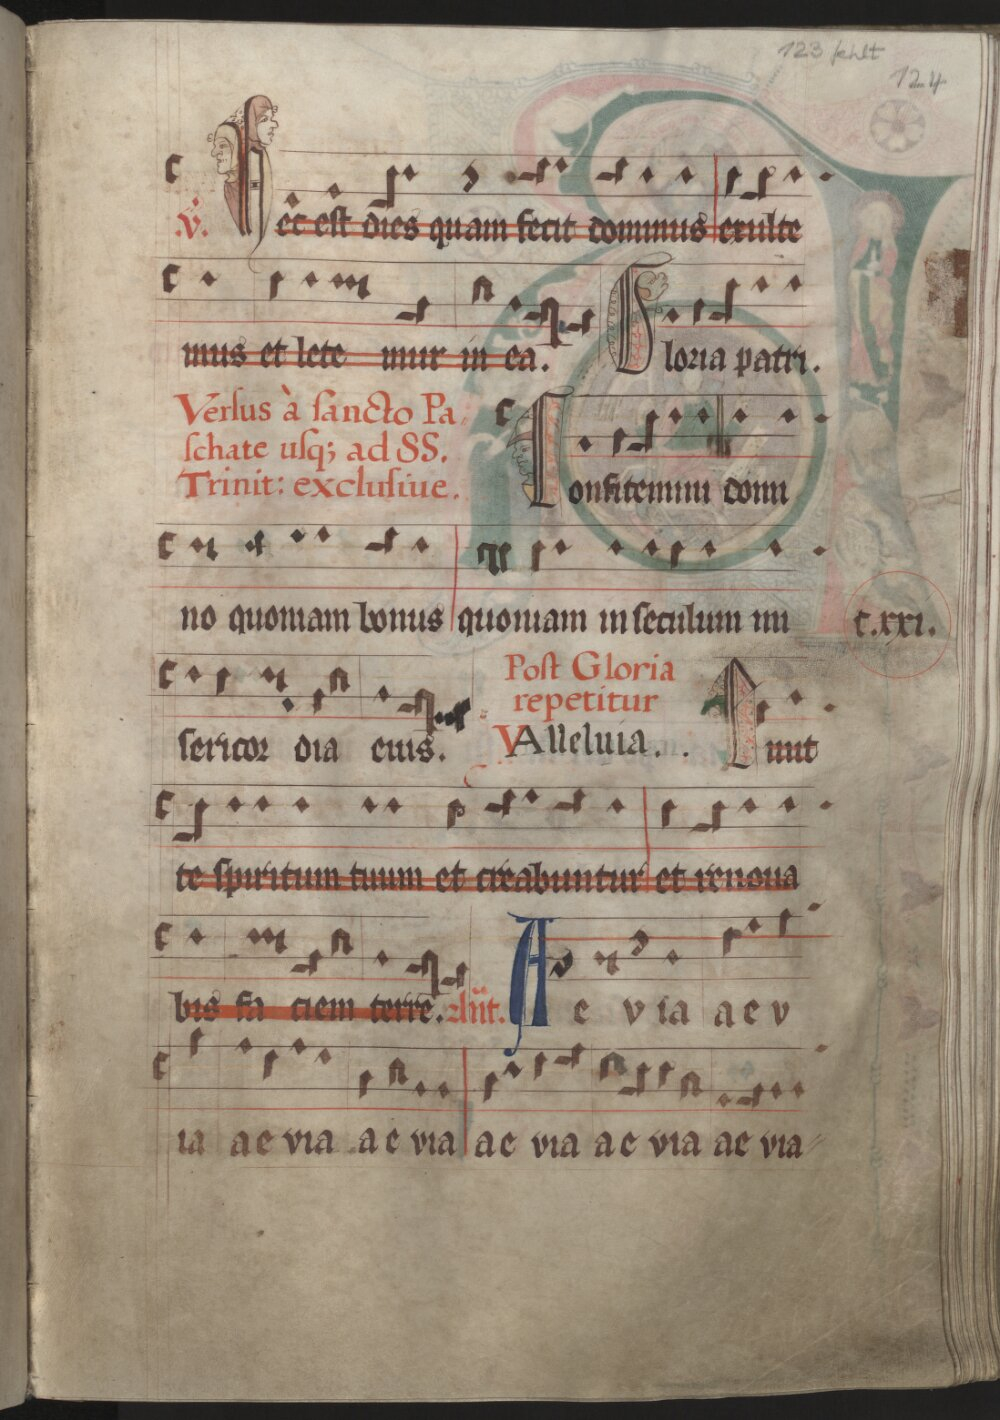 123 fehlt
124
℣. Hec est dies quam fecit dominus exulte
mus et lete mur in ea. Gloria patri.
Versus à sancto Pa
schate usq; ad SS.
Trinit: exclusive.
Confitemini domi
no quoniam bonus quoniam in seculum mi
C.XXI.
sericor dia eius.
Post Gloria
repetitur
Alleluia. .
Emit
te spiritum tuum et creabuntur et renova
bis fa ciem terre. A e v ia a e v
ia a e via a e via a e via a e via ae via